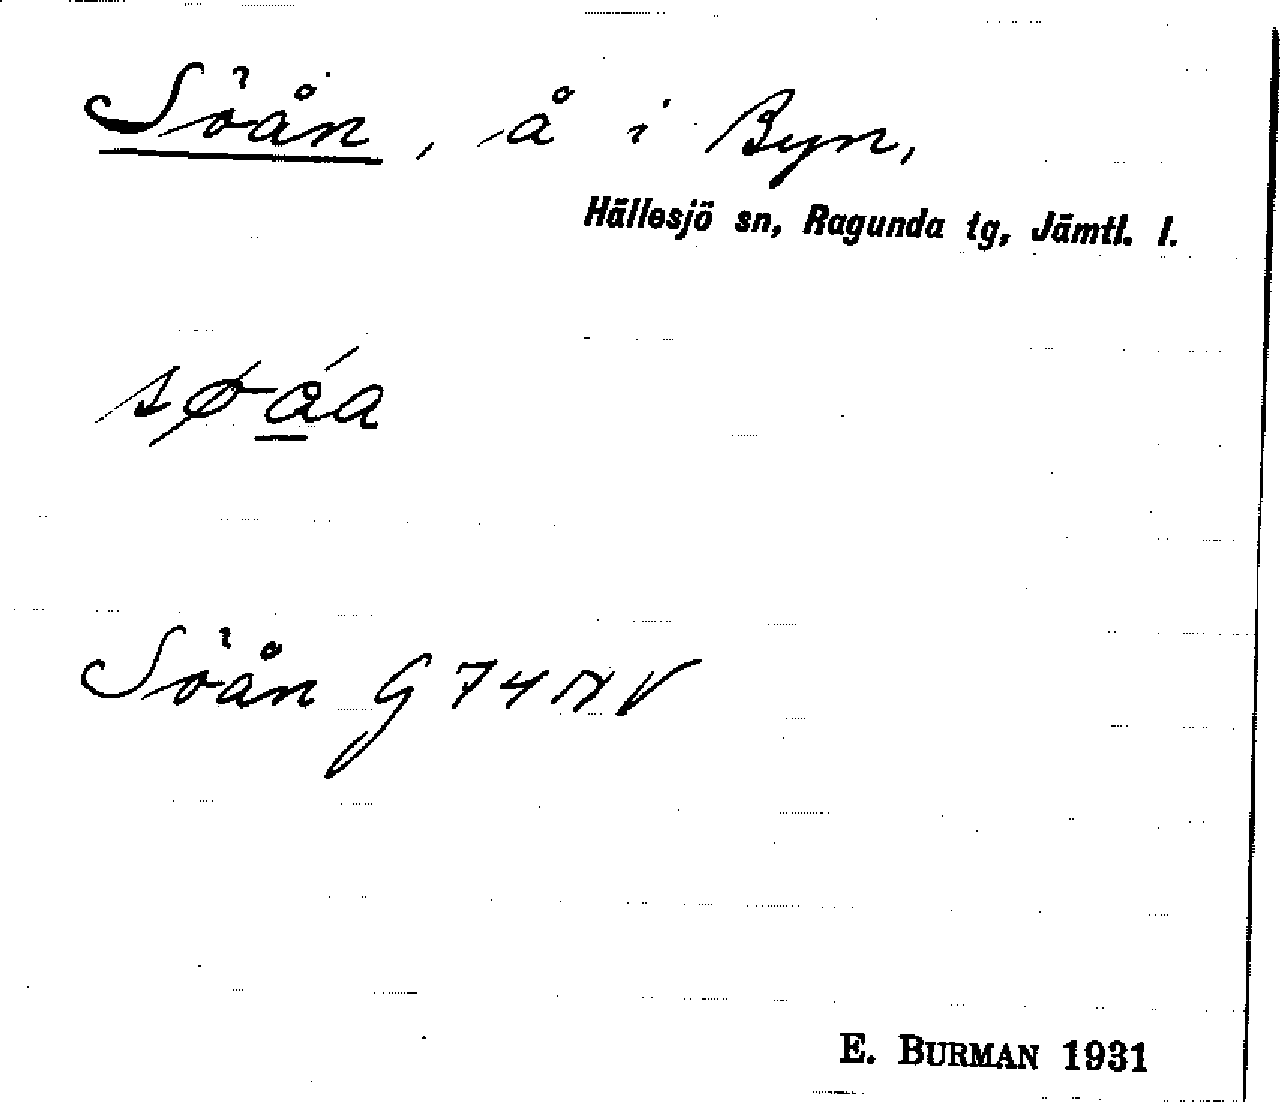 Söån, å i Byn,
Hällesjö sn, Ragunda tg, Jämtl. l.
søåa
Söån G 74 NV
E. BURMAN 1931